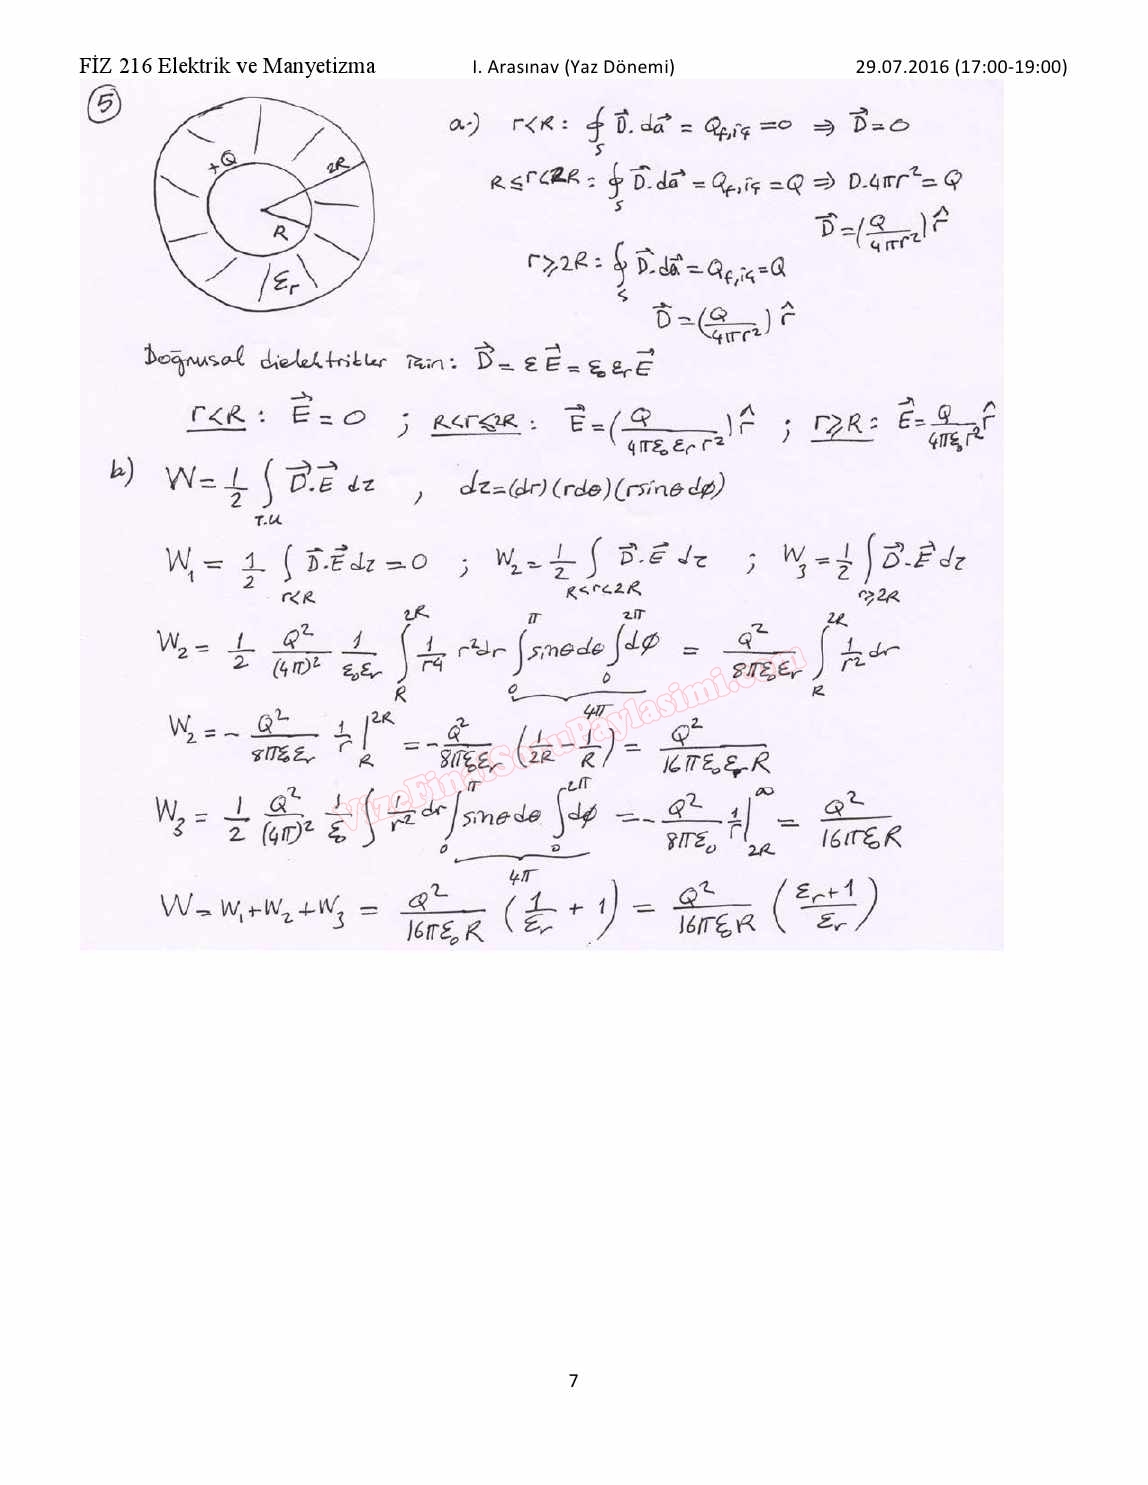 FİZ 216 Elektrik ve Manyetizma I. Arasınav (Yaz Dönemi) 29.07.2016 (17:00-19:00)
5
+Q 2R R εr
a-) r<R : ∮S D⃗.da⃗ = Qf,iç = 0 ⇒ D⃗ = 0
R≤r<2R : ∮S D⃗.da⃗ = Qf,iç = Q ⇒ D.4πr² = Q
D⃗ = (Q/4πr²) r̂
r≥2R : ∮S D⃗.da⃗ = Qf,iç = Q
D⃗ = (Q/4πr²) r̂
Doğrusal dielektrikler için : D⃗ = εE⃗ = ε₀εrE⃗
r<R : E⃗ = 0 ; R<r≤2R : E⃗ = (Q/4πε₀εr r²) r̂ ; r≥R : E⃗ = Q/4πε₀r² r̂
b) W = 1/2 ∫T.U D⃗.E⃗ dz , dz = (dr)(rdθ)(rsinθdϕ)
W₁ = 1/2 ∫r<R D⃗.E⃗ dz = 0 ; W₂ = 1/2 ∫R≤r<2R D⃗.E⃗ dz ; W₃ = 1/2 ∫r≥2R D⃗.E⃗ dz
W₂ = 1/2 Q²/(4π)² 1/ε₀εr ∫R^2R 1/r⁴ r²dr ∫0^π sinθdθ ∫0^2π dϕ = Q²/8πε₀εr ∫R^2R 1/r² dr
4π
W₂ = - Q²/8πε₀εr 1/r |R^2R = - Q²/8πε₀εr (1/2R - 1/R) = Q²/16πε₀εrR
W₃ = 1/2 Q²/(4π)² 1/ε₀ ∫ 1/r² dr ∫0^π sinθdθ ∫0^2π dϕ = - Q²/8πε₀ 1/r |2R^∞ = Q²/16πε₀R
4π
W = W₁+W₂+W₃ = Q²/16πε₀R (1/εr + 1) = Q²/16πε₀R (εr+1/εr)
VizeFinalSoruPaylasimi.com
7